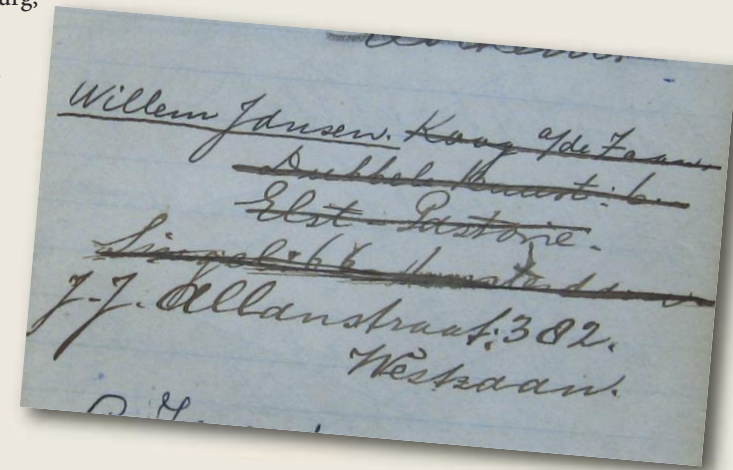 urg,
Willem Jansen. Koog a/de Zaan.
Dubbele Buurt: 6
Elst Pastorie.
Singel 66 Amsterdam
J.J. Allanstraat: 382.
Westzaan.